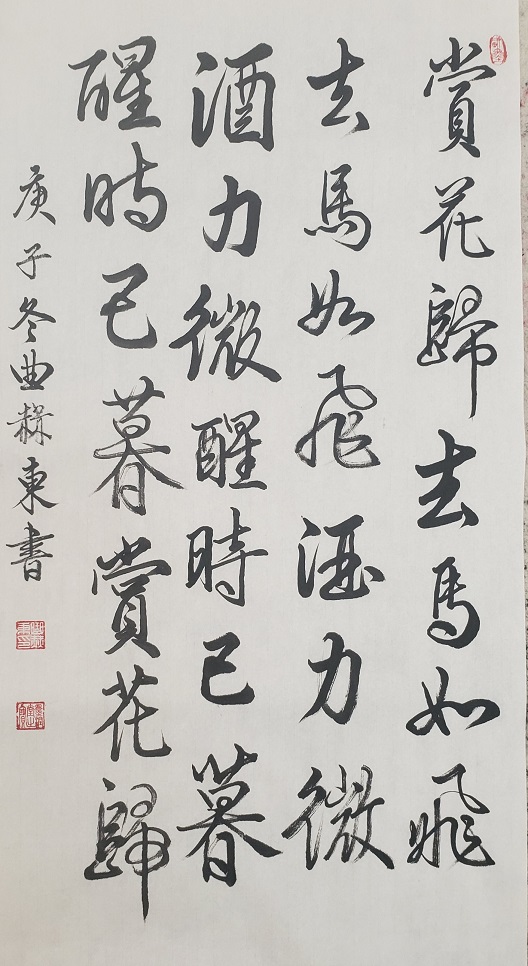 賞花歸去馬如飛
去馬如飛酒力微
酒力微醒時已暮
醒時已暮賞花歸
庚子冬曲 東書